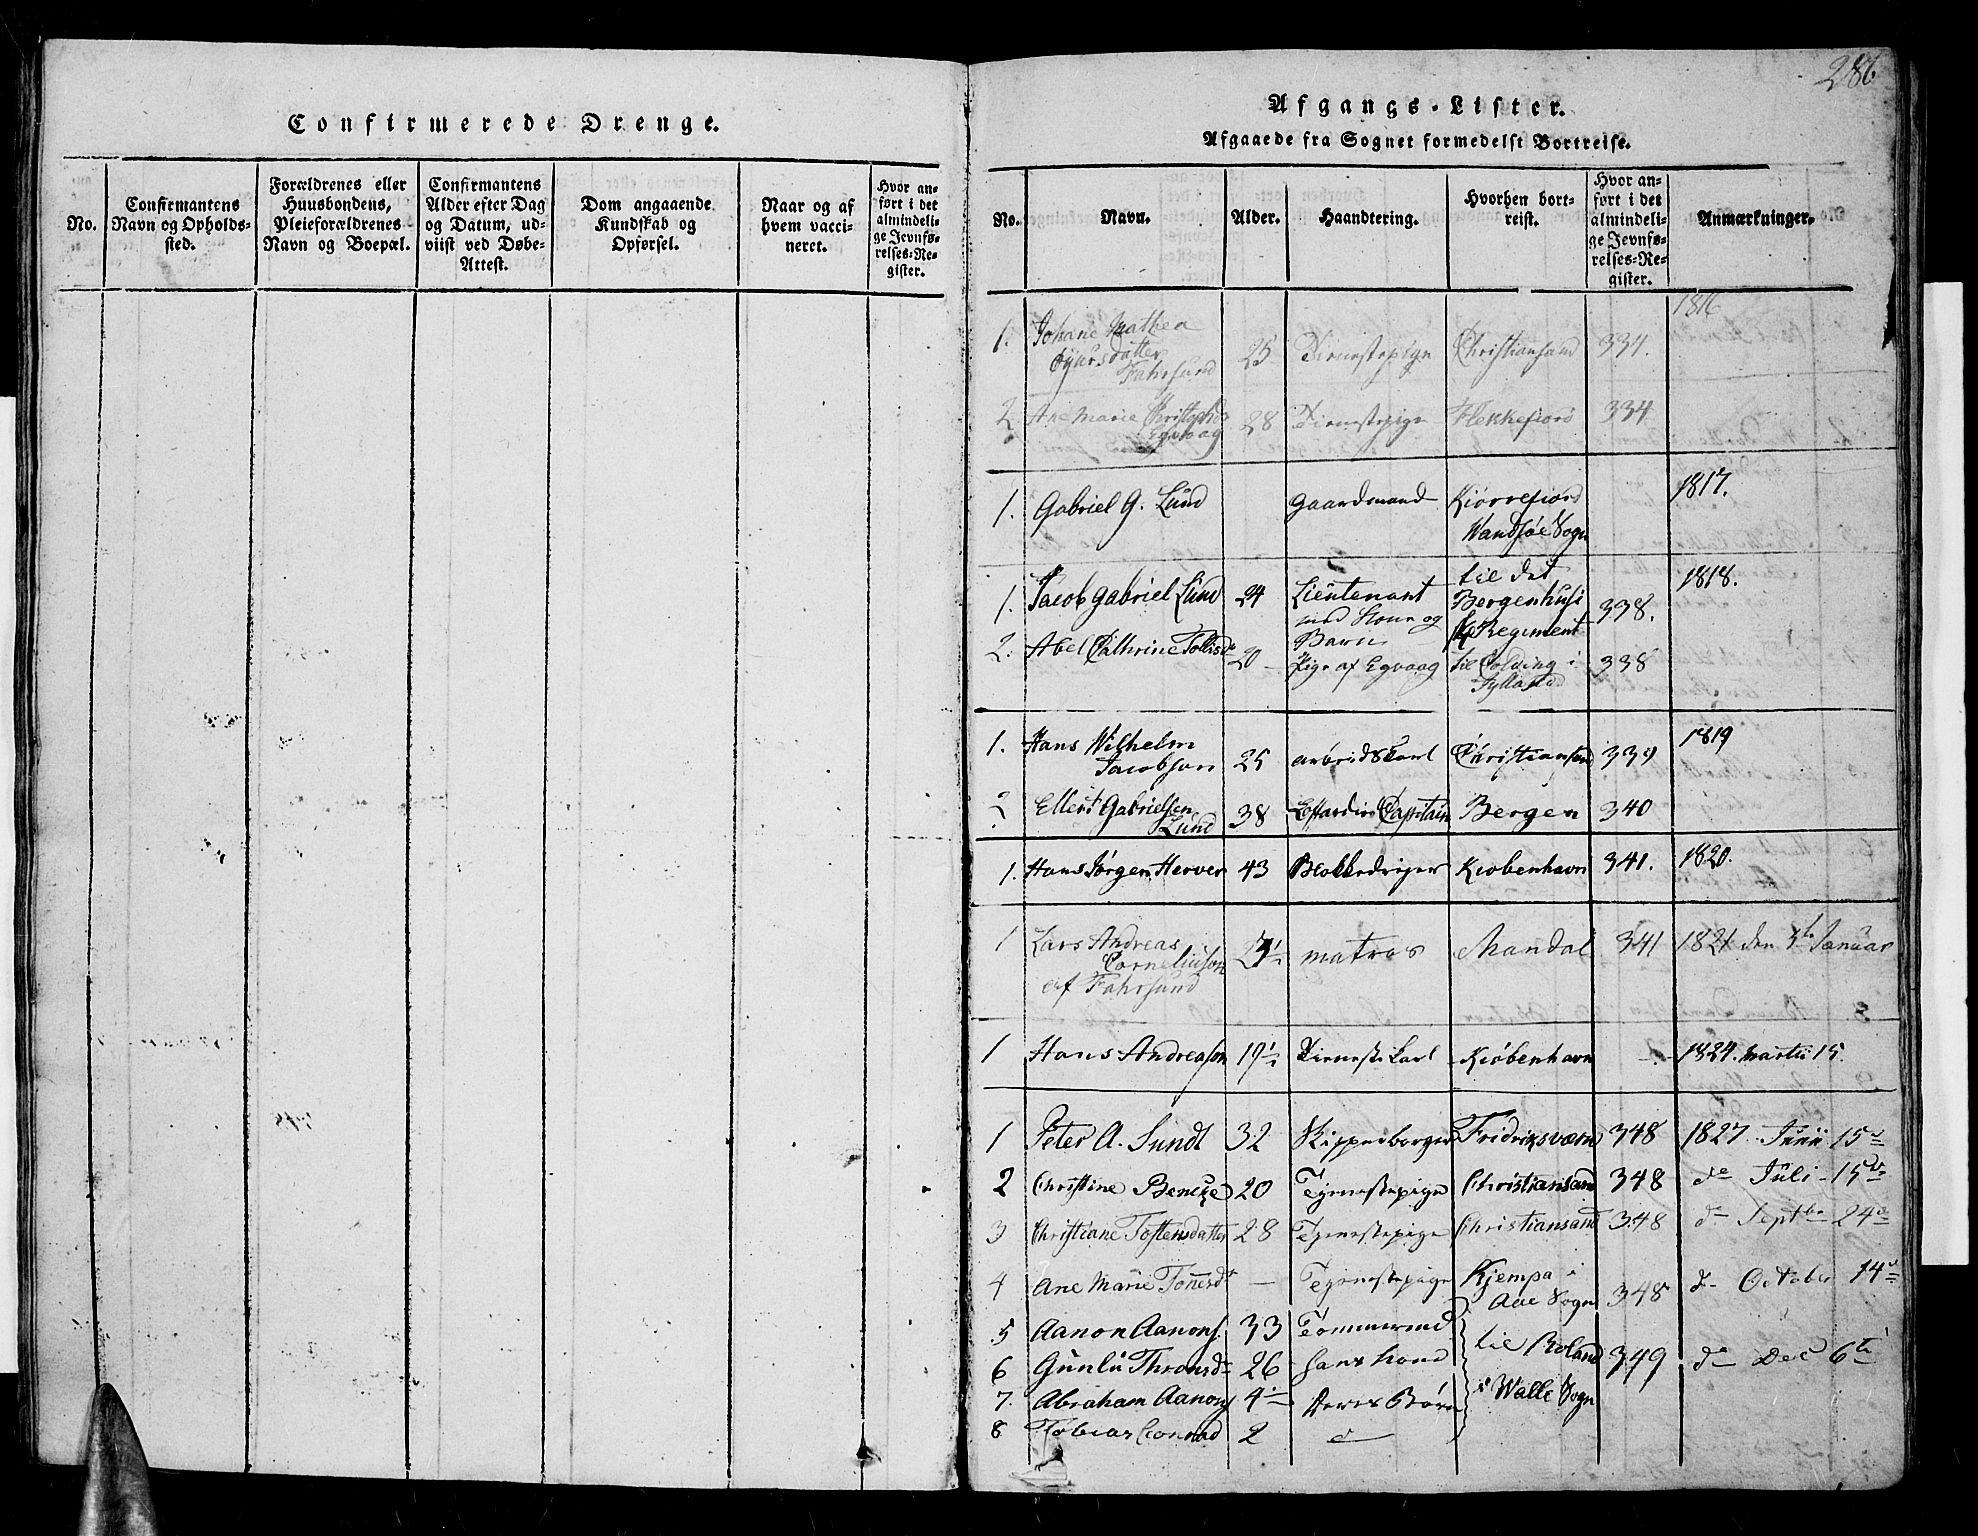 Confirmerede Drenge.
No.
Confirmantens
Navn og Opholds-
sted.
Forældrenes eller
Huusbondens,
Pleieforældrenes
Navn og Boepæl.
Confirmantens
Alder efter Dag
og Datum, ud-
viist ved Døbe-
Attest.
Dom angaaende
Kundskab og
Opførsel.
Naar og af
hvem vacci-
neret.
Hvor an-
ført i det
almindeli-
ge Jevnfø-
relses-Re-
gister.
286
Afgangs-Lister.
Afgaaede fra Sognet formedelst Bortreise.
No.
Navn.
Alder.
Haandtering.
Hvorhen bort-
reist.
Hvor an-
ført i det
almindeli-
ge Jevnfø-
relses-Re-
gister.
Anmærkninger.
1816
1. Johane Mathea
datter
Fahrsund 25 Tienestepige Christiansand 334.
2 Ane Marie
Egvaag 28 Tienestepige Flekkefiord 334
1. Gabriel G. Lund Gaardmand Kiørrefiord 1817.
Vandsøe Sogn
1. Jacob Gabriel Lund 24 Lieutenant til det 1818.
med Kone og Bergenhusi
Barn Regiment 338.
2. Abel Cathrine 20 Pige af Egvaag til Colding i 338
1. Hans Wilhelm 1819
Jacobsen 25 arbeidskarl Christiansand 339
2 Ellert Gabrielsen
Lund 38 Capitain Bergen 340
1. Hans Jørgen Herver 43 Kiøbenhavn 341. 1820.
1 Lars Andreas
Corneliusen matros Mandal 341 1821 den Januar
af Fahrsund
1 Hans Andreasen 19½ Tienestekarl Kiøbenhavn - 1824. Martii 15.
1 Peter A. Sundt 32 Skipperborger Fridriksværn 348 1827 Junii 15de
2 Christine 20 Tjenestepige Christiansand 348 do Juli 15de
3 Christiane Tostensdatter 28 Tjenestepige Christiansand 348 do Septbr 24de
4 Ane Marie - Tjenestepige Kjempa i
Aae Sogn 348 do October 14de
5 Aanon Aanons. 33 Tømmermd
6 Gunlu 26 hans kone til Roland 349 do Dec 6te
7. Abraham Aanons 4 Deres Børn i Walle Sogn
8 Tobias 2 do